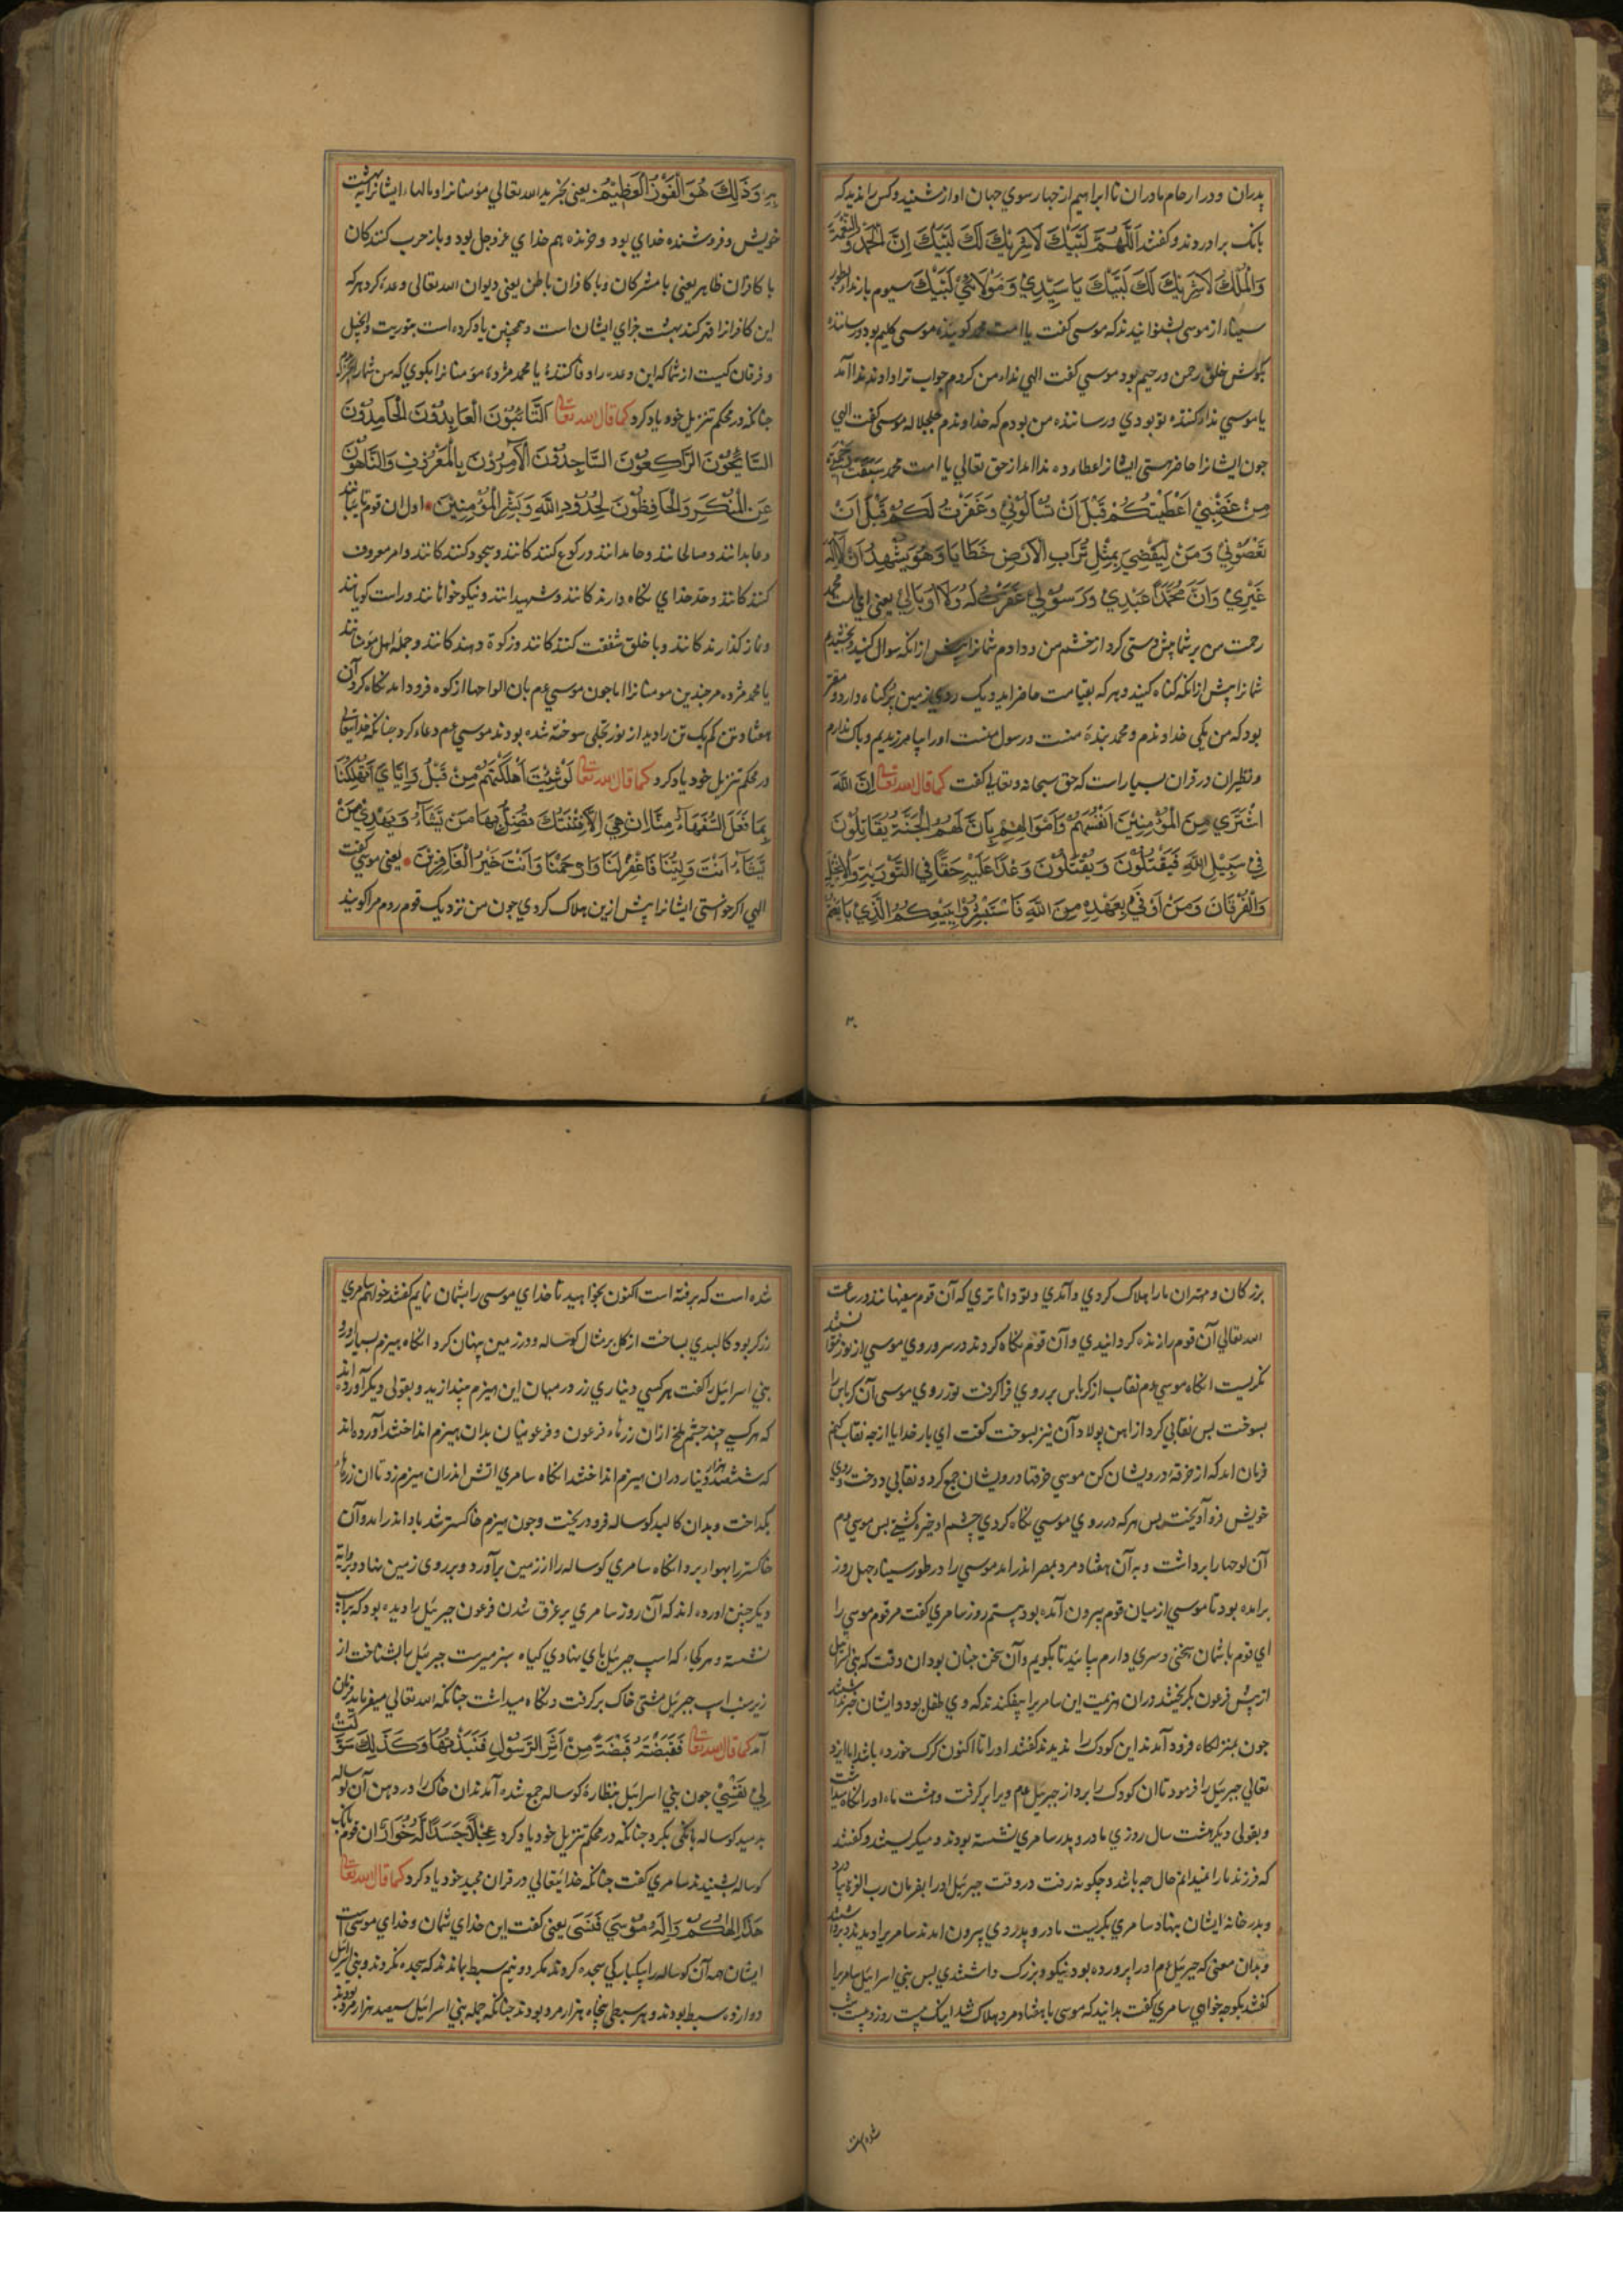 پدران و در ارحام مادران تا ابراهیم از چهار سوی جهان اواز شنیدند و کس را ندیدند که
بانک براوردند و کفتند اَللّٰهُمَّ لَبَّیْكَ لَاشَرِیْكَ لَكَ لَبَّیْكَ اِنَّ الْحَمْدَ وَالنِّعْمَةَ
وَالْمُلْكَ لَاشَرِیْكَ لَكَ لَبَّیْكَ یَا سَیِّدِیْ وَ مَوْلَائِیْ لَبَّیْكَ سیوم بار نداء بطور
سیناء از موسی بشنوانیدند که موسی کفت یا امت محمد کوینده موسی کلیم بود و رساننده
بکوش خلق رحمن و رحیم بود موسی کفت الهی نداء من کردم جواب ترا دادند ندا آمد
یا موسی نداء کننده تو بودی و رساننده من بودم که خداوندم جل جلاله موسی کفت الهی
چون ایشانرا حاضر هستی ایشانرا عطاء ده ندا امد از حق تعالی یا امت محمد سَبَقَتْ رَحْمَتِیْ
مِنْ غَضَبِیْ اَعْطَیْتُکُمْ قَبْلَ اَنْ تَسْاَلُوْنِیْ وَ غَفَرْتُ لَکُمْ قَبْلَ اَنْ
تَعْصُوْنِیْ وَ مَنْ لَقِیَنِیْ بِمِثْلِ تُرَابِ الْاَرْضِ خَطَایَا وَ هُوَ یَشْهَدُ اَنْ لَا اِلٰهَ
غَیْرِیْ وَ اَنَّ مُحَمَّدًا عَبْدِیْ وَ رَسُوْلِیْ غَفَرْتُ لَهُ وَلَا اُوبَالِیْ یعنی ای امت محمد
رحمت من بر شما پیش دستی کرد از خشم من و دادم شمانرا پیش از انکه سوال کنید و بخشیدم
شمانرا پیش از انکه کناه کنید و هر که بقیامت حاضر اید و یک روی زمین پر کناه دارد و مقر
بود که من یکی خداوندم و محمد بندهٔ منست و رسول منست اورا بیامرزیدیم و باک ندارم
و نظیر ان در قران بسیار است که حق سبحانه و تعالی کفت کما قال الله تعالی اِنَّ اللهَ
اشْتَرٰی مِنَ الْمُؤْمِنِیْنَ اَنْفُسَهُمْ وَ اَمْوَالَهُمْ بِاَنَّ لَهُمُ الْجَنَّةَ یُقَاتِلُوْنَ
فِیْ سَبِیْلِ اللهِ فَیَقْتُلُوْنَ وَ یُقْتَلُوْنَ وَعْدًا عَلَیْهِ حَقًّا فِی التَّوْرٰیةِ وَالْاِنْجِیْلِ
وَالْقُرْاٰنَ وَ مَنْ اَوْفٰی بِعَهْدِهٖ مِنَ اللهِ فَاسْتَبْشِرُوْا بِبَیْعِکُمُ الَّذِیْ بَایَعْتُمْ
بِهٖ وَذٰلِكَ هُوَ الْفَوْزُ الْعَظِیْمُ یعنی بخرید الله تعالی مؤمنانرا و مالهاء ایشانرا به بهشت
خویش و فروشنده خدای بود و خرنده هم خدای عز و جل بود و باز حرب کنندکان
با کافران ظاهر یعنی با مشرکان و با کافران باطن یعنی دیوان الله تعالی وعده کرد هر که
این کافرانرا قهر کند بهشت جزای ایشان است و همچنین یاد کرده است بتوریت و انجیل
و فرقان کیست از شما که این وعده را وفا کننده یا محمد مژده مؤمنانرا بکوی که من شمارا
چنانکه در محکم تنزیل خود یاد کرد کما قال الله تعالی اَلتَّائِبُوْنَ الْعَابِدُوْنَ الْحَامِدُوْنَ
السَّائِحُوْنَ الرَّاکِعُوْنَ السَّاجِدُوْنَ الْاٰمِرُوْنَ بِالْمَعْرُوْفِ وَالنَّاهُوْنَ
عَنِ الْمُنْکَرِ وَ الْحَافِظُوْنَ لِحُدُوْدِ اللهِ وَ بَشِّرِ الْمُؤْمِنِیْنَ اول ان قوم تایبانند
و عابدانند و صالحانند و حامدانند و رکوع کنندکانند و سجود کنندکانند و امر معروف
کنندکانند و حد خدای نکاه دارندکانند و شهیدانند و نیکو خوانانند و راست کویانند
و نماز کذارندکانند و با خلق شفقت کنندکانند و زکوة دهندکانند و جمله اهل مؤمنانند
یا محمد مژده مر چندین مومنانرا اما چون موسی عم بان الواحها از کوه فرود امد نکاه کرد آن
هفتاد تن کم یک تن را دید از نور تجلی سوخته شده بودند موسی عم دعاء کرد چنانکه خدایتعالی
در محکم تنزیل خود یاد کرد کما قال الله تعالی لَوْ شِئْتَ اَهْلَکْتَهُمْ مِنْ قَبْلُ وَ اِیَّایَ اَتُهْلِکُنَا
بِمَا فَعَلَ السُّفَهَاءُ مِنَّا اِنْ هِیَ اِلَّا فِتْنَتُكَ تُضِلُّ بِهَا مَنْ تَشَاءُ وَ تَهْدِیْ مَنْ
تَشَاءُ اَنْتَ وَلِیُّنَا فَاغْفِرْلَنَا وَارْحَمْنَا وَ اَنْتَ خَیْرُ الْغَافِرِیْنَ یعنی موسی کفت
الهی اکر خواستی ایشانرا پیش ازین هلاک کردی چون من نزدیک قوم روم مرا کویند
بزرکان و مهتران مارا هلاک کردی و آمدی و تو داناتری که آن قوم سفیهانند در ساعت
الله تعالی آن قوم را زنده کردانیدی و آن قوم نکاه کردند در سر و روی موسی از نور نتوانستند
نکریست انکاه موسی عم نقاب از کرباس بر روی فرا کرفت نور روی موسی آن کرباس را
بسوخت بس نقابی کرد از اهن پولاد آن نیز بسوخت کفت ای بار خدایا از چه نقاب کنم
فرمان امد که از خرقهٔ درویشان کن موسی خرقها درویشان جمع کرد و نقابی دوخت و بروی
خویش فرو آویخت پس هر که در روی موسی نکاه کردی چشم او خیره کشتی بس موسی عم
آن لوحها را برداشت و به آن هفتاد مرد بمصر اندر امد موسی را در طور سیناء چهل روز
برامده بود تا موسی از میان قوم بیرون آمده بود بیستم روز سامری کفت مر قوم موسی را
ای قوم با شمان سخنی و سری دارم بیائید تا بکویم و آن سخن چنان بود ان وقت که بنی اسرائیل
از پیش فرعون بکریختند دران هزیمت این سامری را بیفکندند که وی طفل بود و ایشان
چون بمنزلکاه فرود آمدند این کودک را ندیدند کفتند اورا تا اکنون کرک خورده باشد اما ایزد
تعالی جبرئیل را فرمود تا ان کودک را بردار جبرئیل عم ویرا بر کرفت و هشت ماه اورا نکاه میداشت
و بقولی دیکر هشت سال روزی مادر و پدر سامری نشسته بودند و میکریستند و کفتند
که فرزند مارا نمیدانم حال چه باشد و چکونه رفت در وقت جبرئیل اورا بفرمان رب العزة
و بدر خانهٔ ایشان بنهاد سامری بکریست مادر و پدر وی بیرون امدند سامری را دیدند
و بدان معنی که جبرئیل عم اورا پرورده بود نیکو و بزرک داشتندی بس بنی اسرائیل سامری را
کفتند بکو چه خواهی سامری کفت بدانید که موسی با هفتاد مرد هلاک شد اینک بیست روز و بیست شب
شده است
شده است که برفته است اکنون بخواهید تا خدای موسی را بشمان نمایم کفتند خواهم سامری
زرکر بود کالبدی بساخت از کل بر مثال کوساله و در زمین پنهان کرد انکاه هیزم بسیار
بنی اسرائیل را کفت هر کسی دیناری زر در میان این هیزم بیندازید و بقولی دیکر آورده اند
که هر کسی چند چشم ملخ از ان زرهاء فرعون و فرعونیان بدان هیزم انداختند آورده اند
که ششصد هزار دینار دران هیزم انداختند انکاه سامری اتش اندران هیزم زد تا ان زرهاء
بکداخت و بدان کالبد کوساله فرود ریخت و چون هیزم خاکستر شد باد اندر امد و آن
خاکستر را بهواء برد انکاه سامری کوساله را از زمین برآورد و بر روی زمین نهاد
دیکر چنین اورده اند که آن روز سامری بر غرق شدن فرعون جبرئیل را دیده بود که بر اسب
نشسته و هر کجاء که اسپ جبرئیل پای نهادی کیاه سبز میرست جبرئیل را بشناخت از
زیر سنب اسپ جبرئیل مشتی خاک بر کرفت و نکاه میداشت چنانکه الله تعالی میفرماید فرمان
آمد کما قال الله تعالی فَقَبَضْتُ قَبْضَةً مِنْ اَثَرِ الرَّسُوْلِ فَنَبَذْتُهَا وَ کَذٰلِكَ سَوَّلَتْ
لِیْ نَفْسِیْ چون بنی اسرائیل بنظارهٔ کوساله جمع شده آمدند ان خاک را در دهن آن کوساله
بدمید کوساله بانکی بکرد چنانکه در محکم تنزیل خود یاد کرد عِجْلًا جَسَدًا لَهُ خُوَارٌ ان قوم بانک
کوساله بشنیدند سامری کفت چنانکه خدایتعالی در قران مجید خود یاد کرد کما قال الله تعالی
هٰذَا اِلٰهُکُمْ وَ اِلٰهُ مُوْسٰی فَنَسِیَ یعنی کفت این خدای شمان و خدای موسی است
ایشان همه آن کوساله را بیکبارکی سجده کردند مکر دو نیم سبط ماندند که سجده نکردند و بنی اسرائیل
دوازده سبط بودند و هر سبطی پنجاه هزار مرد بودند چنانکه جمله بنی اسرائیل سیصد هزار مرد بودند